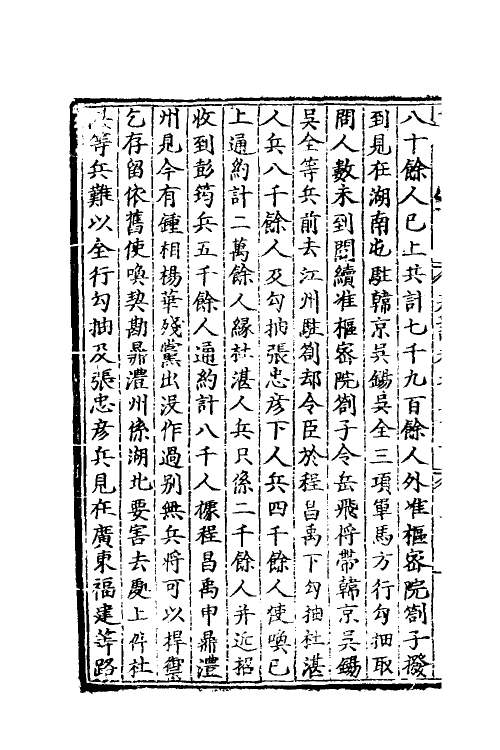 八十餘人已上共計七千九百餘人外准樞密院劄子撥
到見在湖南屯駐韓京吳錫吳全三項單馬方行勾抽取
問人數未到間續准樞密院劄子令岳飛將帶韓京吳錫
吳全等兵前去江州駐劄却令臣於程昌禹下勾抽杜湛
人兵八千餘人及勾抽張忠彦下人兵四千餘人使喚已
上通約計二萬餘人緣杜湛人兵只係二千餘人并近招
收到彭筠兵五千餘人通約計八千人據程昌禹申鼎澧
州見今有鍾相楊華殘黨出沒作過别無兵將可以捍禦
乞存留依舊使喚契勘鼎澧州係湖北要害去處上件杜
等兵難以全行勾抽及張忠彦兵見在廣東福建等路